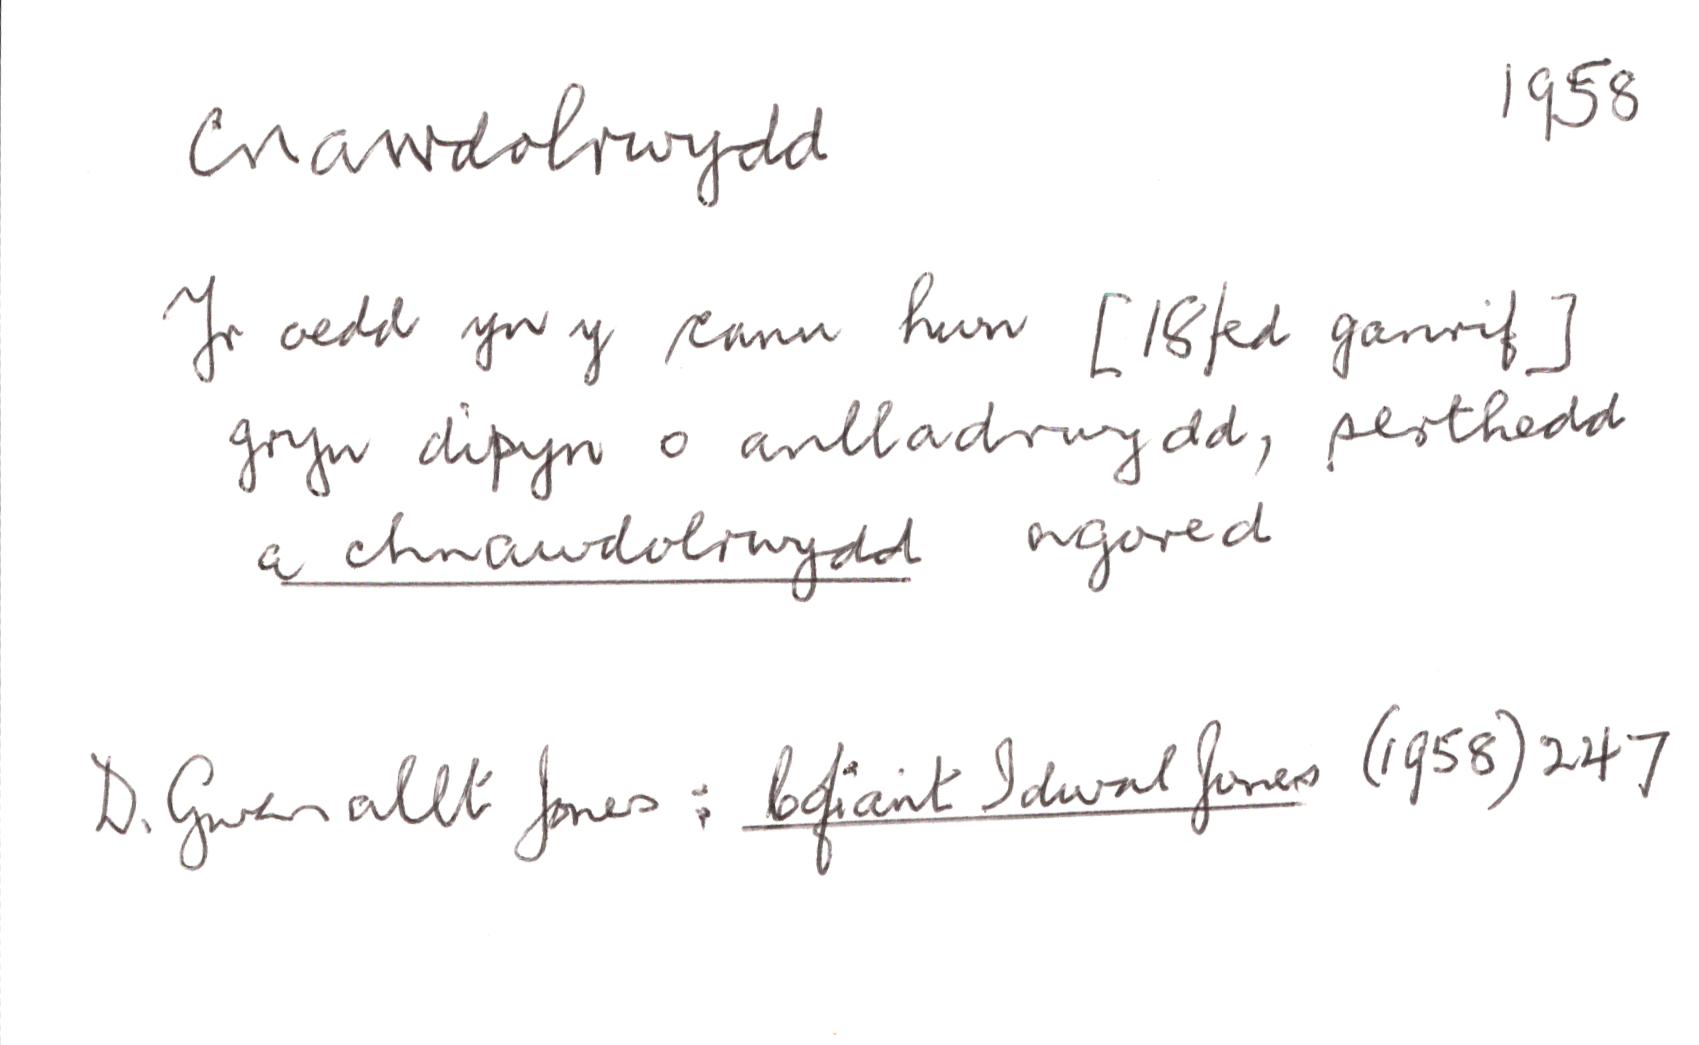 cnawdolrwydd
1958
Yr oedd yn y canu hwn [18fed ganrif]
gryn dipyn o anlladrwydd, serthedd
a chnawdolrwydd agored
D. Gwenallt Jones : Cofiant Idwal Jones (1958) 247